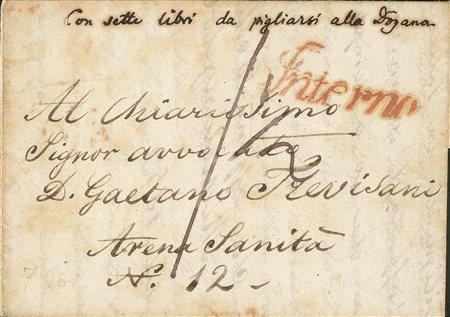 Con sette libri da pigliarsi alla Dogana
Interno
Al Chiarissimo
Signor avvocato
D. Gaetano Trevisani
Arena Sanità
N. 12